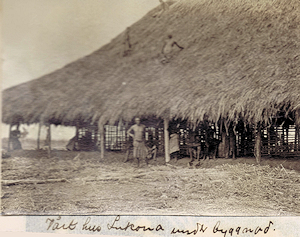 Vårt hus Lukona under byggnad.